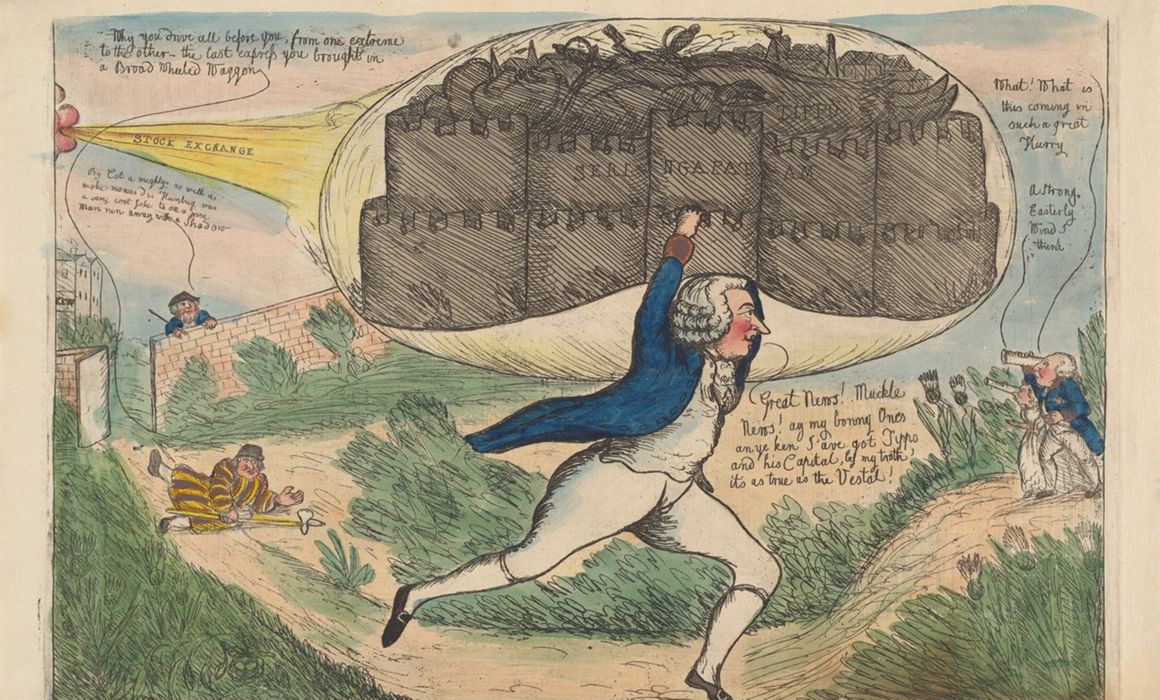 Why you drive all before you, from one extreme
to the other – the last express you brought in
a Broad Wheeled Waggon
STOCK EXCHANGE
By Cot a mighty as well as
make nonus dis Humbug was
a very coot joke to see a wise
man run away with a Shadow
KEW
SERINGAPATAM
What! What is
this coming in
such a great
Hurry
A strong
Easterly
Wind I
think
Great News! Muckle
News! ay my bonny Ones
an ye ken I'ave got Typo
and his Capital, by my troth,
its as true as the Vestal!